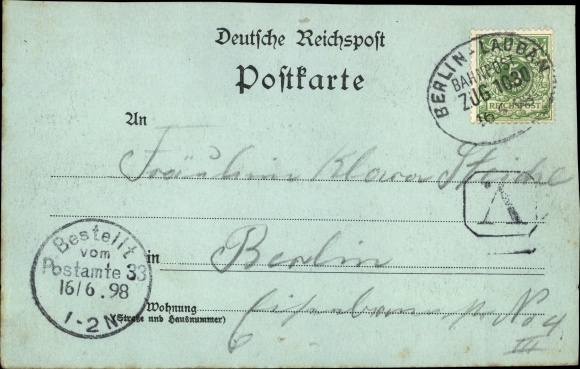 Deutsche Reichspost
Postkarte
BERLIN-LAUBAN
BAHNPOST
ZUG 1030
16
REICHSPOST
An
Fräulein Klara
V
in Berlin
Bestellt
vom
Postamte 33
16/6.98
1-2N
Wohnung
(Straße und Hausnummer)
No 4
III